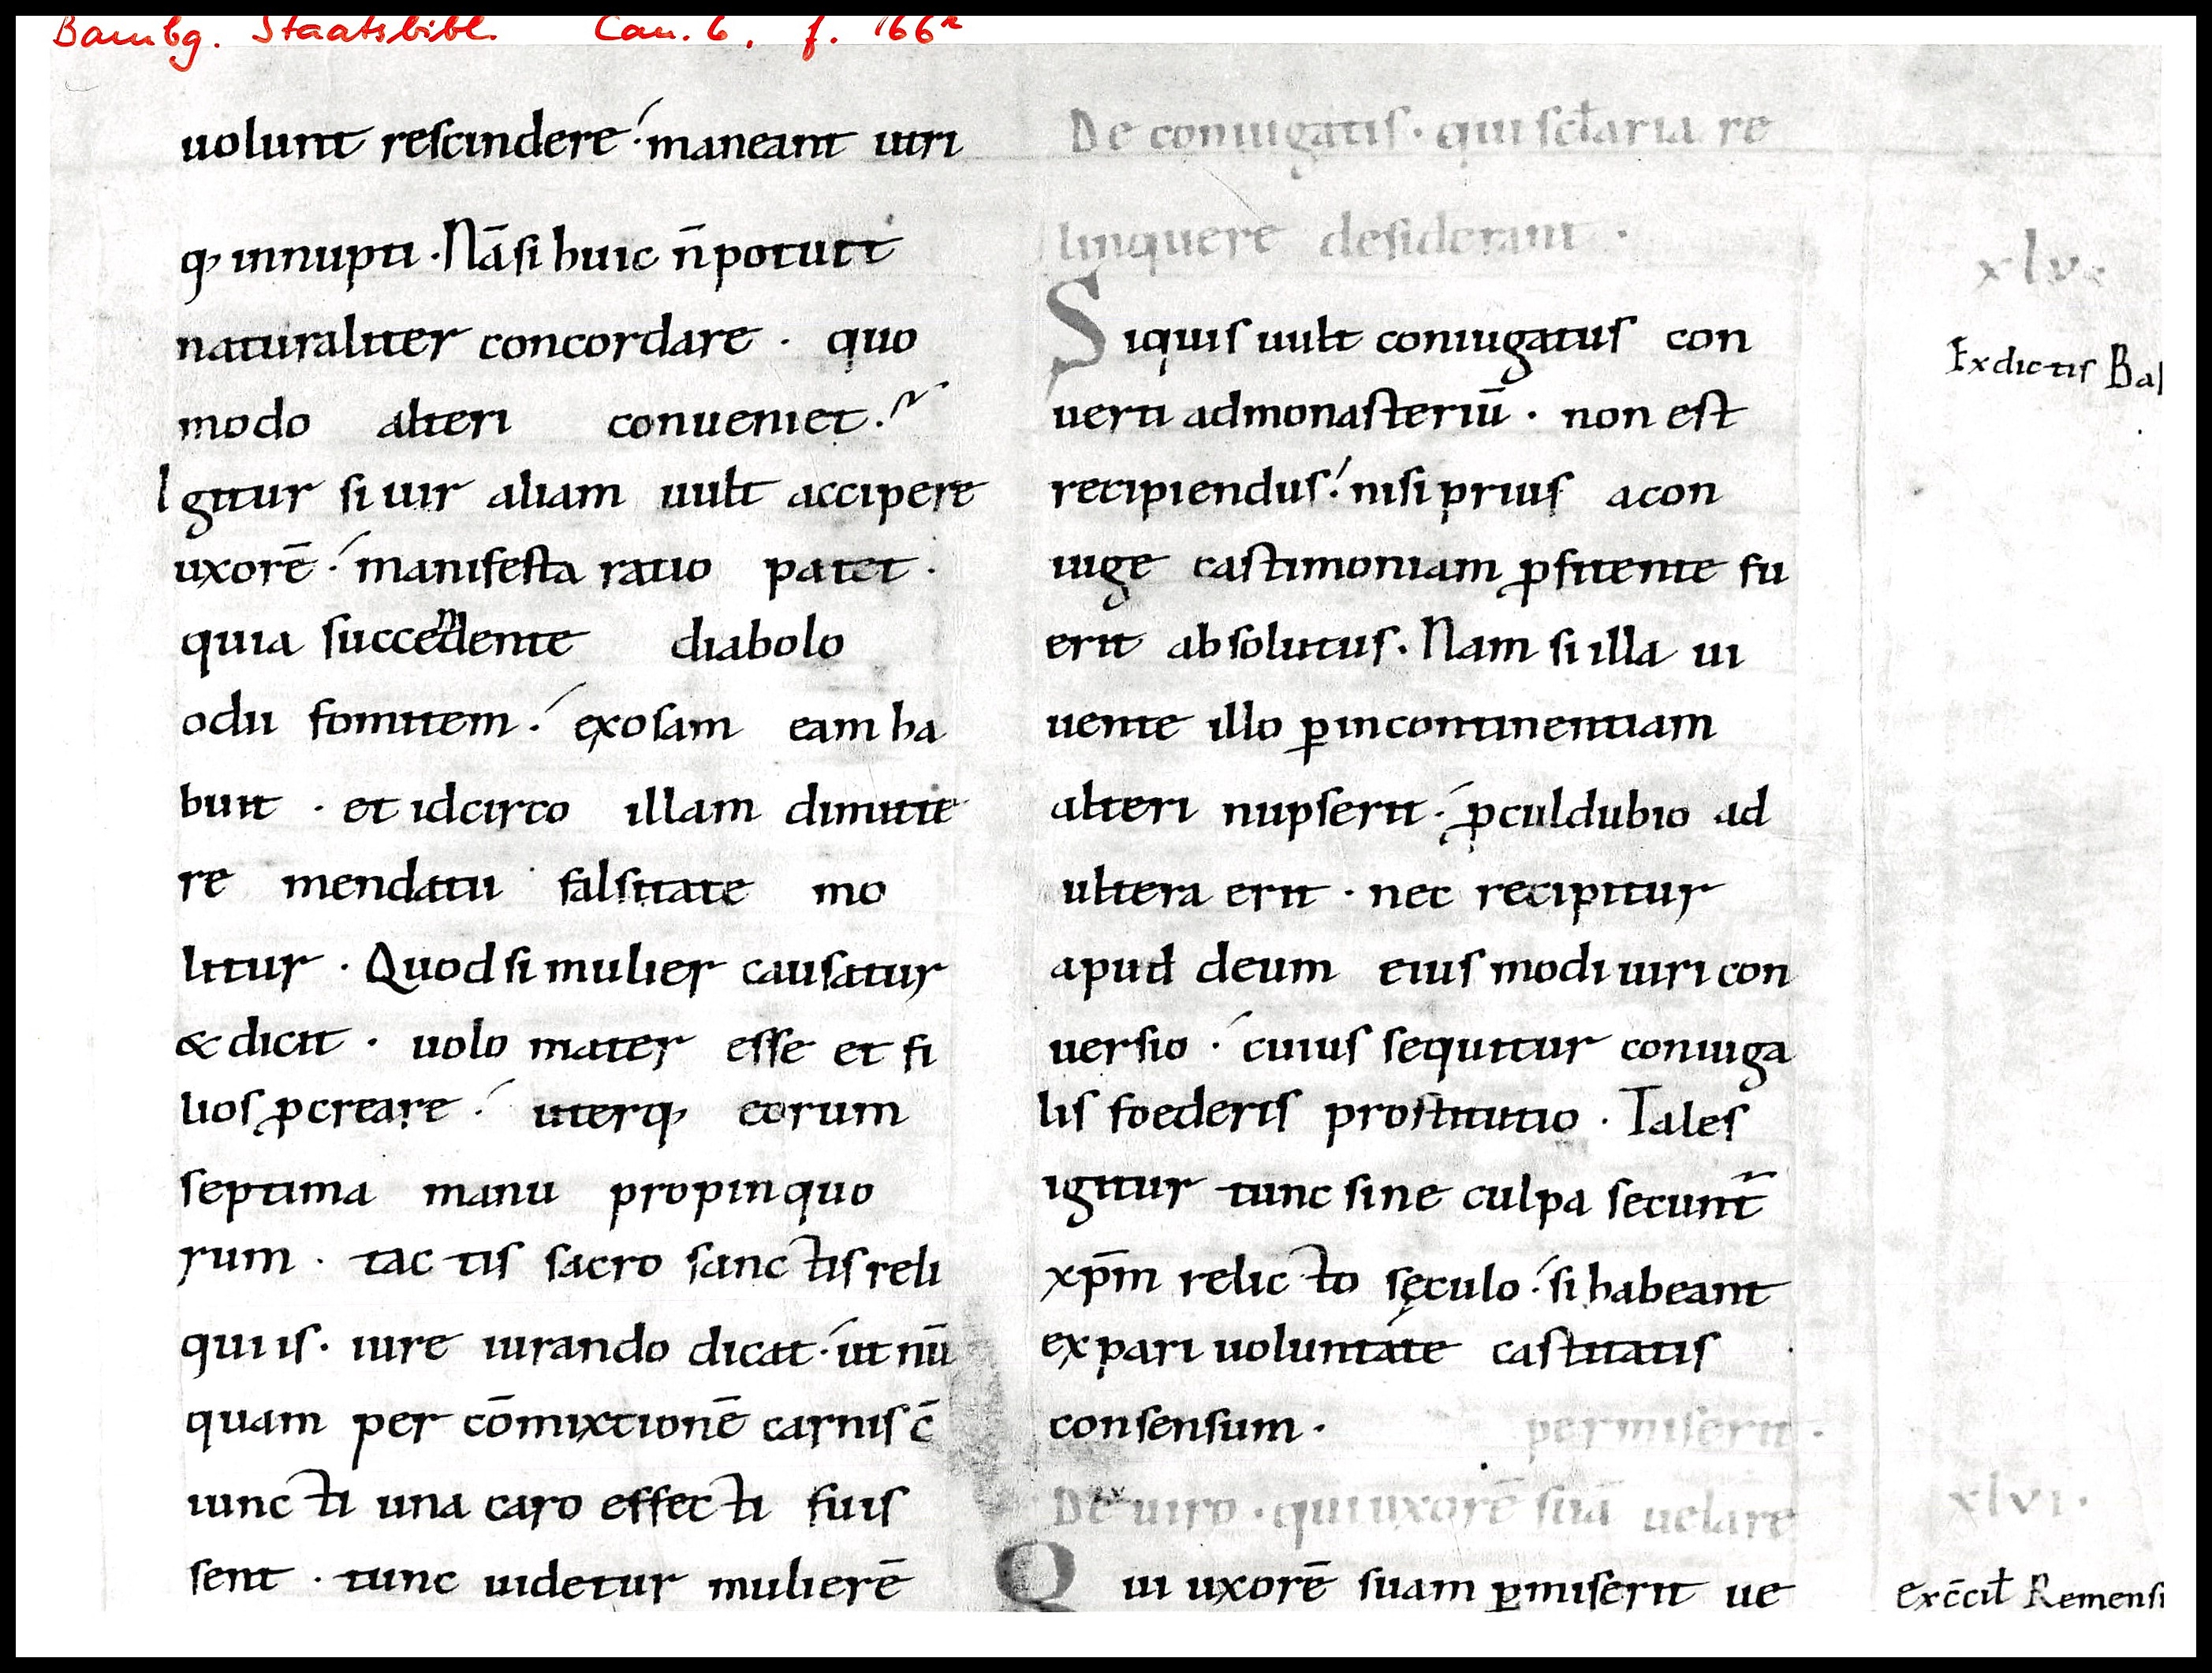 Bambg. Staatsbibl. Can. 6, f. 166r
uolunt rescindere maneant utri
q, innupti. Nā si huic n̄ potuit
naturaliter concordare . quo
modo alteri conueniet.
Igitur si uir aliam uult accipere
uxorē . manifesta ratio patet .
quia succendente diabolo
odii fomitem . exosam eam ha
buit . et idcirco illam dimitte
re mendatii falsitate mo
litur . Quod si mulier causatur
& dicit . uolo mater esse et fi
lios ꝓcreare . uterq, eorum
septima manu propinquo
rum . tactis sacro sanctis reli
quiis . iure iurando dicat . ut nū
quam per cōmixtionē carnis c̄
iuncti una caro effecti fuis
sent . tunc uidetur mulierē
De coniugatis . qui sclaria re
linquere desiderant .
xlv.
Siquis uult coniugatus con
Ex dictis Bas
uerti ad monasteriū . non est
recipiendus . nisi prius a con
iuge castimoniam ꝓfitente fu
erit absolutus . Nam si illa ui
uente illo ꝑ incontinentiam
alteri nupserit . ꝓculdubio ad
ultera erit . nec recipitur
apud deum eius modi uiri con
uersio . cuius sequitur coniuga
lis foederis prostitutio . Tales
igitur tunc sine culpa secunt̄
xp̄m relicto sęculo . si habeant
ex pari uoluntate castitatis
consensum .
permiserit .
De uiro . qui uxorē suā uelare
xlvi.
Qui uxorē suam ꝑmiserit ue
Ex c̄cil Remensi